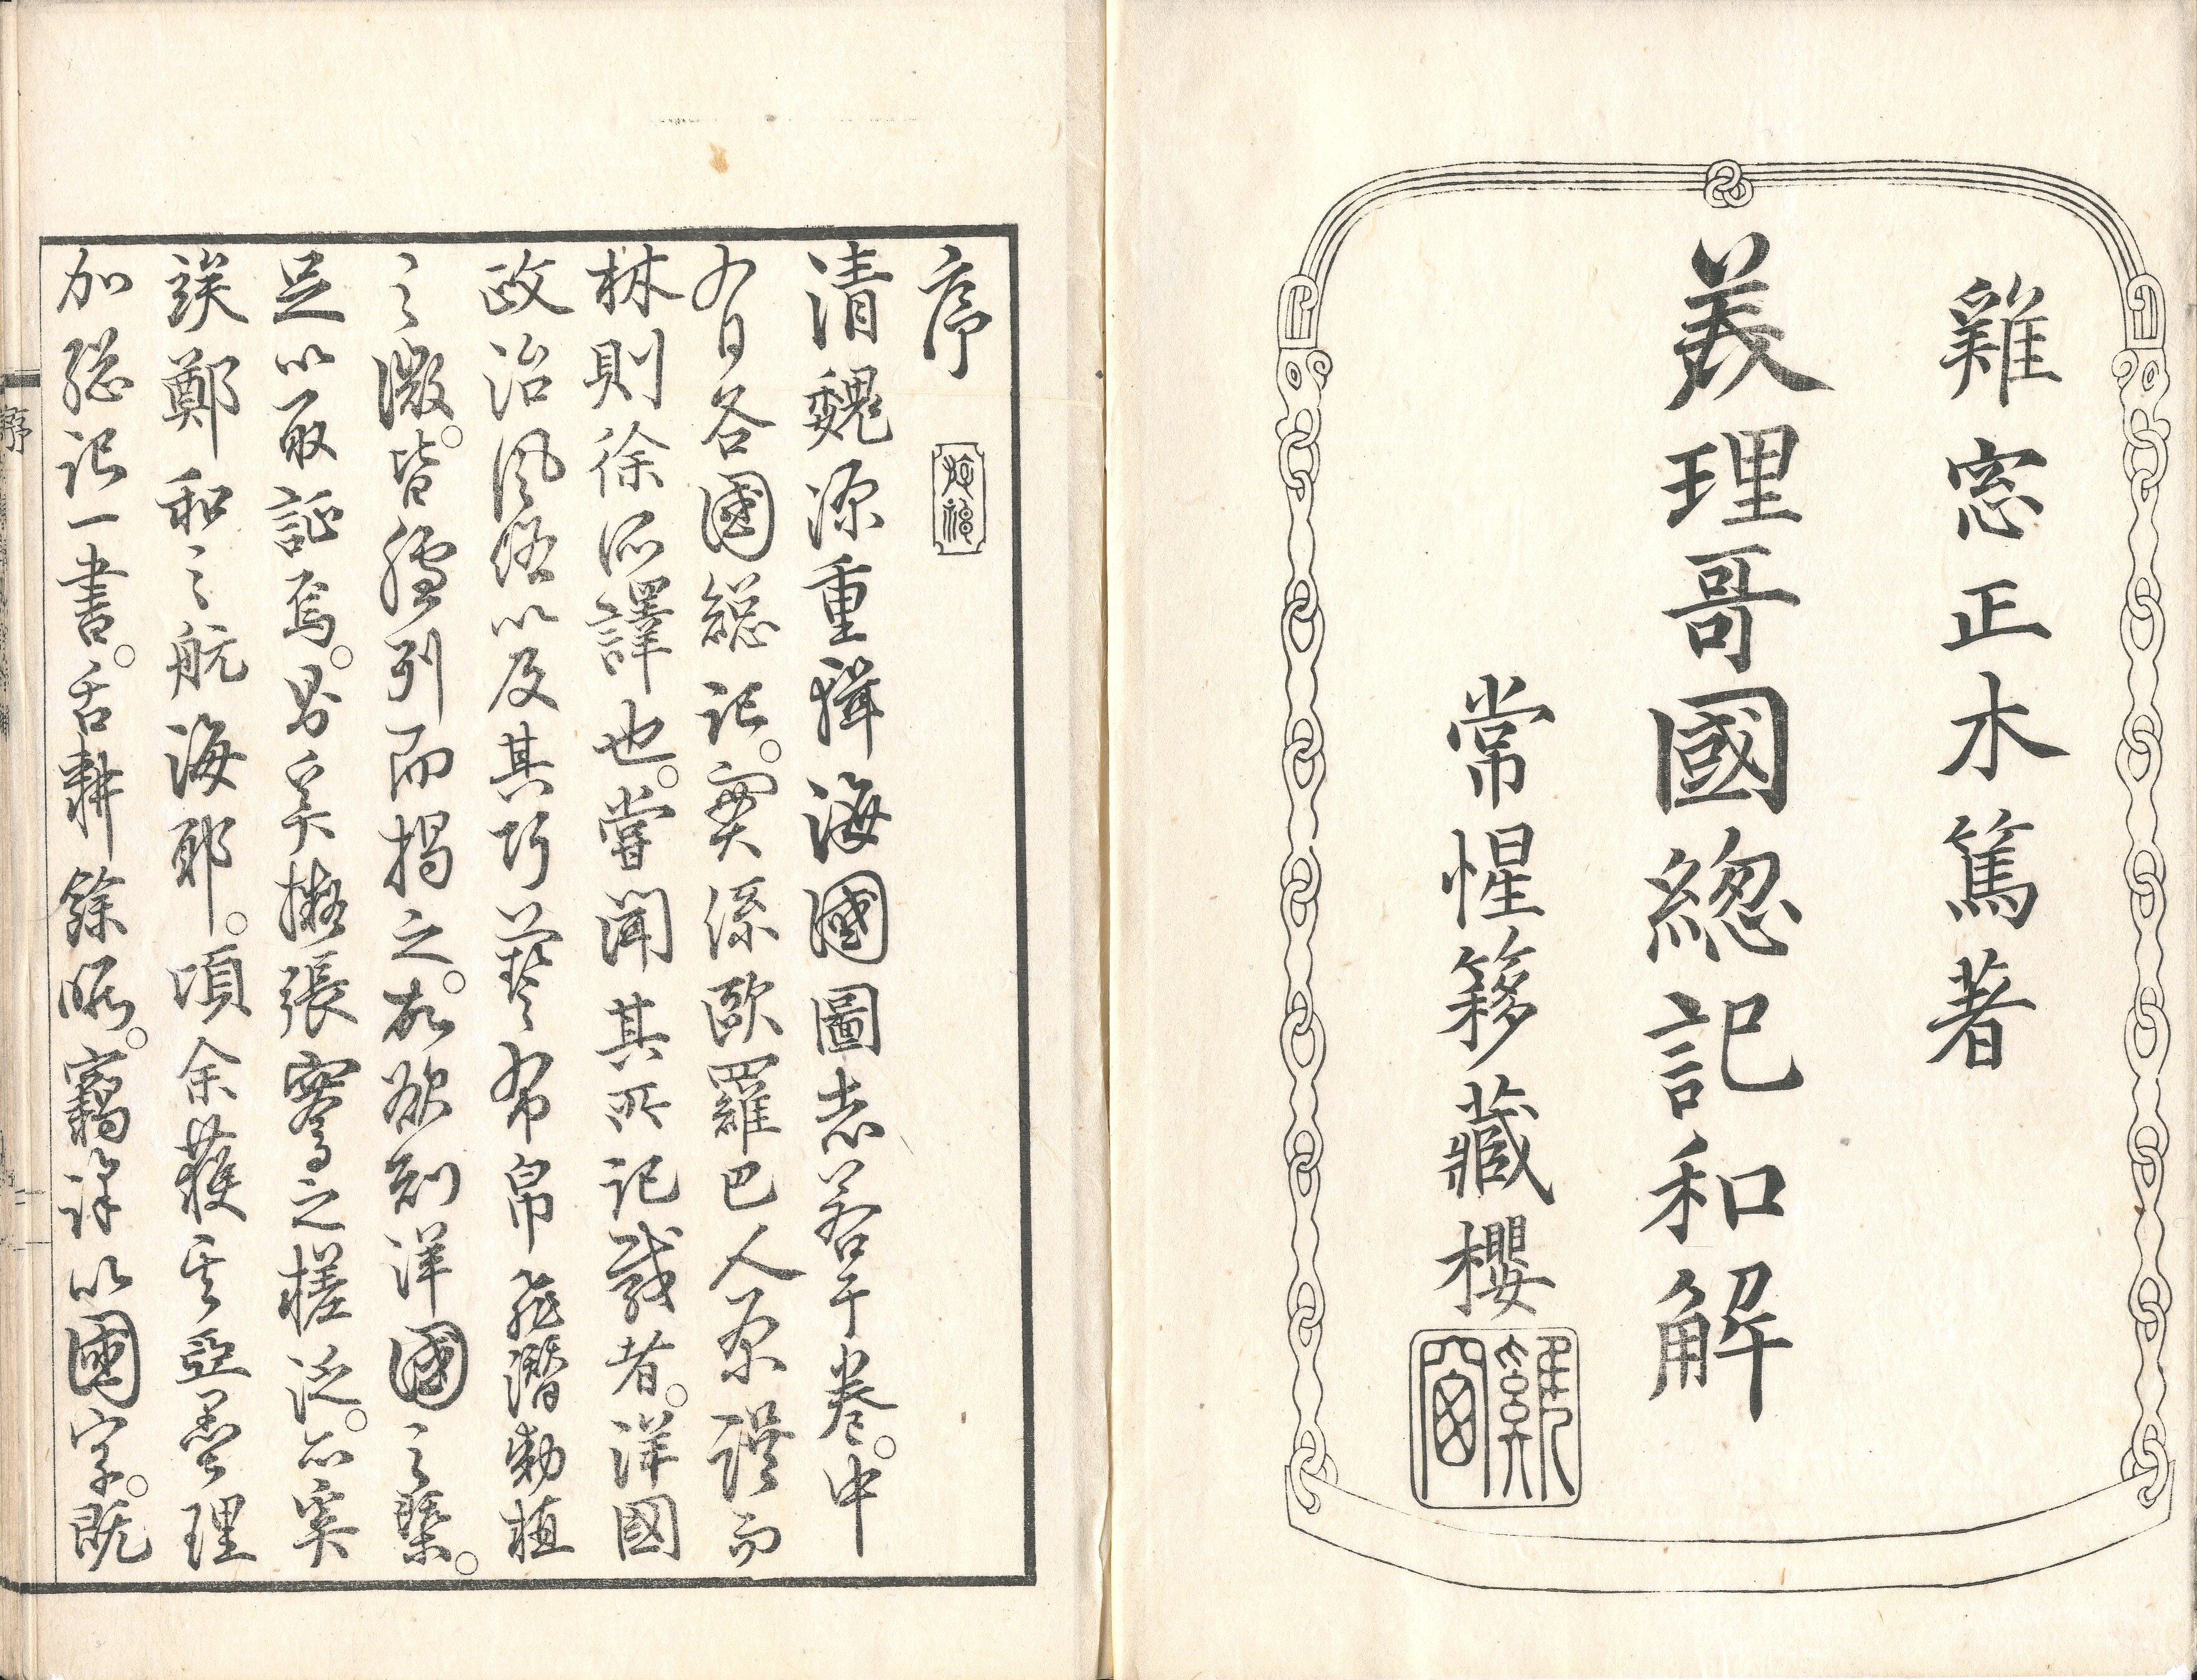 雞窓正木篤著
美理哥國總記和解
常惺簃藏櫻
雞窗
序
清魏源重輯海國圖志若干卷。中
有曰各國總記。實係歐羅巴人原譔而
林則徐所譯也。嘗聞其所記載者。洋國
政治風俗以及其巧藝布帛飛潛動植
之微。皆臚列而揭之。故欲刻洋國之槩。
足以取証焉。曷矣擬張騫之槎泛。亦奚
誒鄭和之航海耶。頃余獲其亞墨理
加總記一書。舌耕餘暇。竊譯以國字。既
序